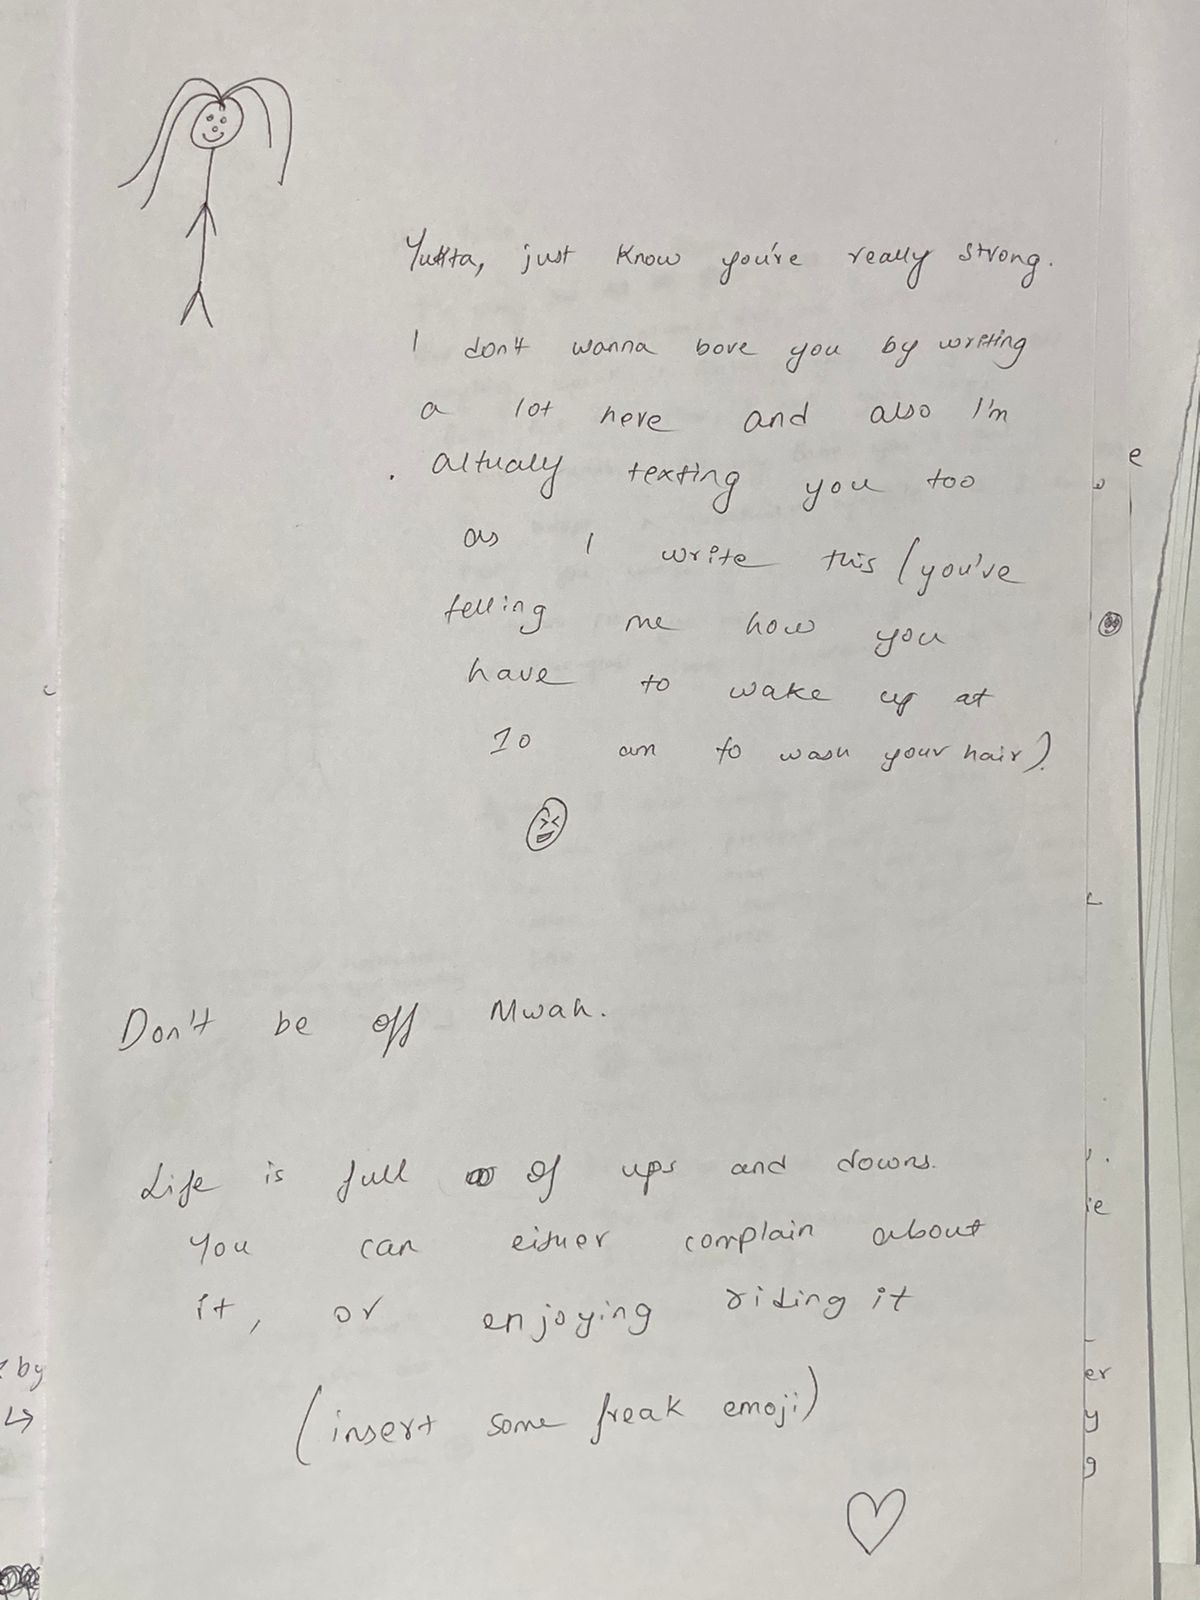 Yukta, just know you're really strong.
I don't wanna bore you by writing
a lot here and also I'm
altualy texting you too
as I write this (you're
telling me how you
have to wake up at
10 am to wash your hair).
Don't be off Mwah.
Life is full of ups and downs.
You can either complain about
it, or enjoying riding it
(insert some freak emoji)
e
by
ie
er
y
g